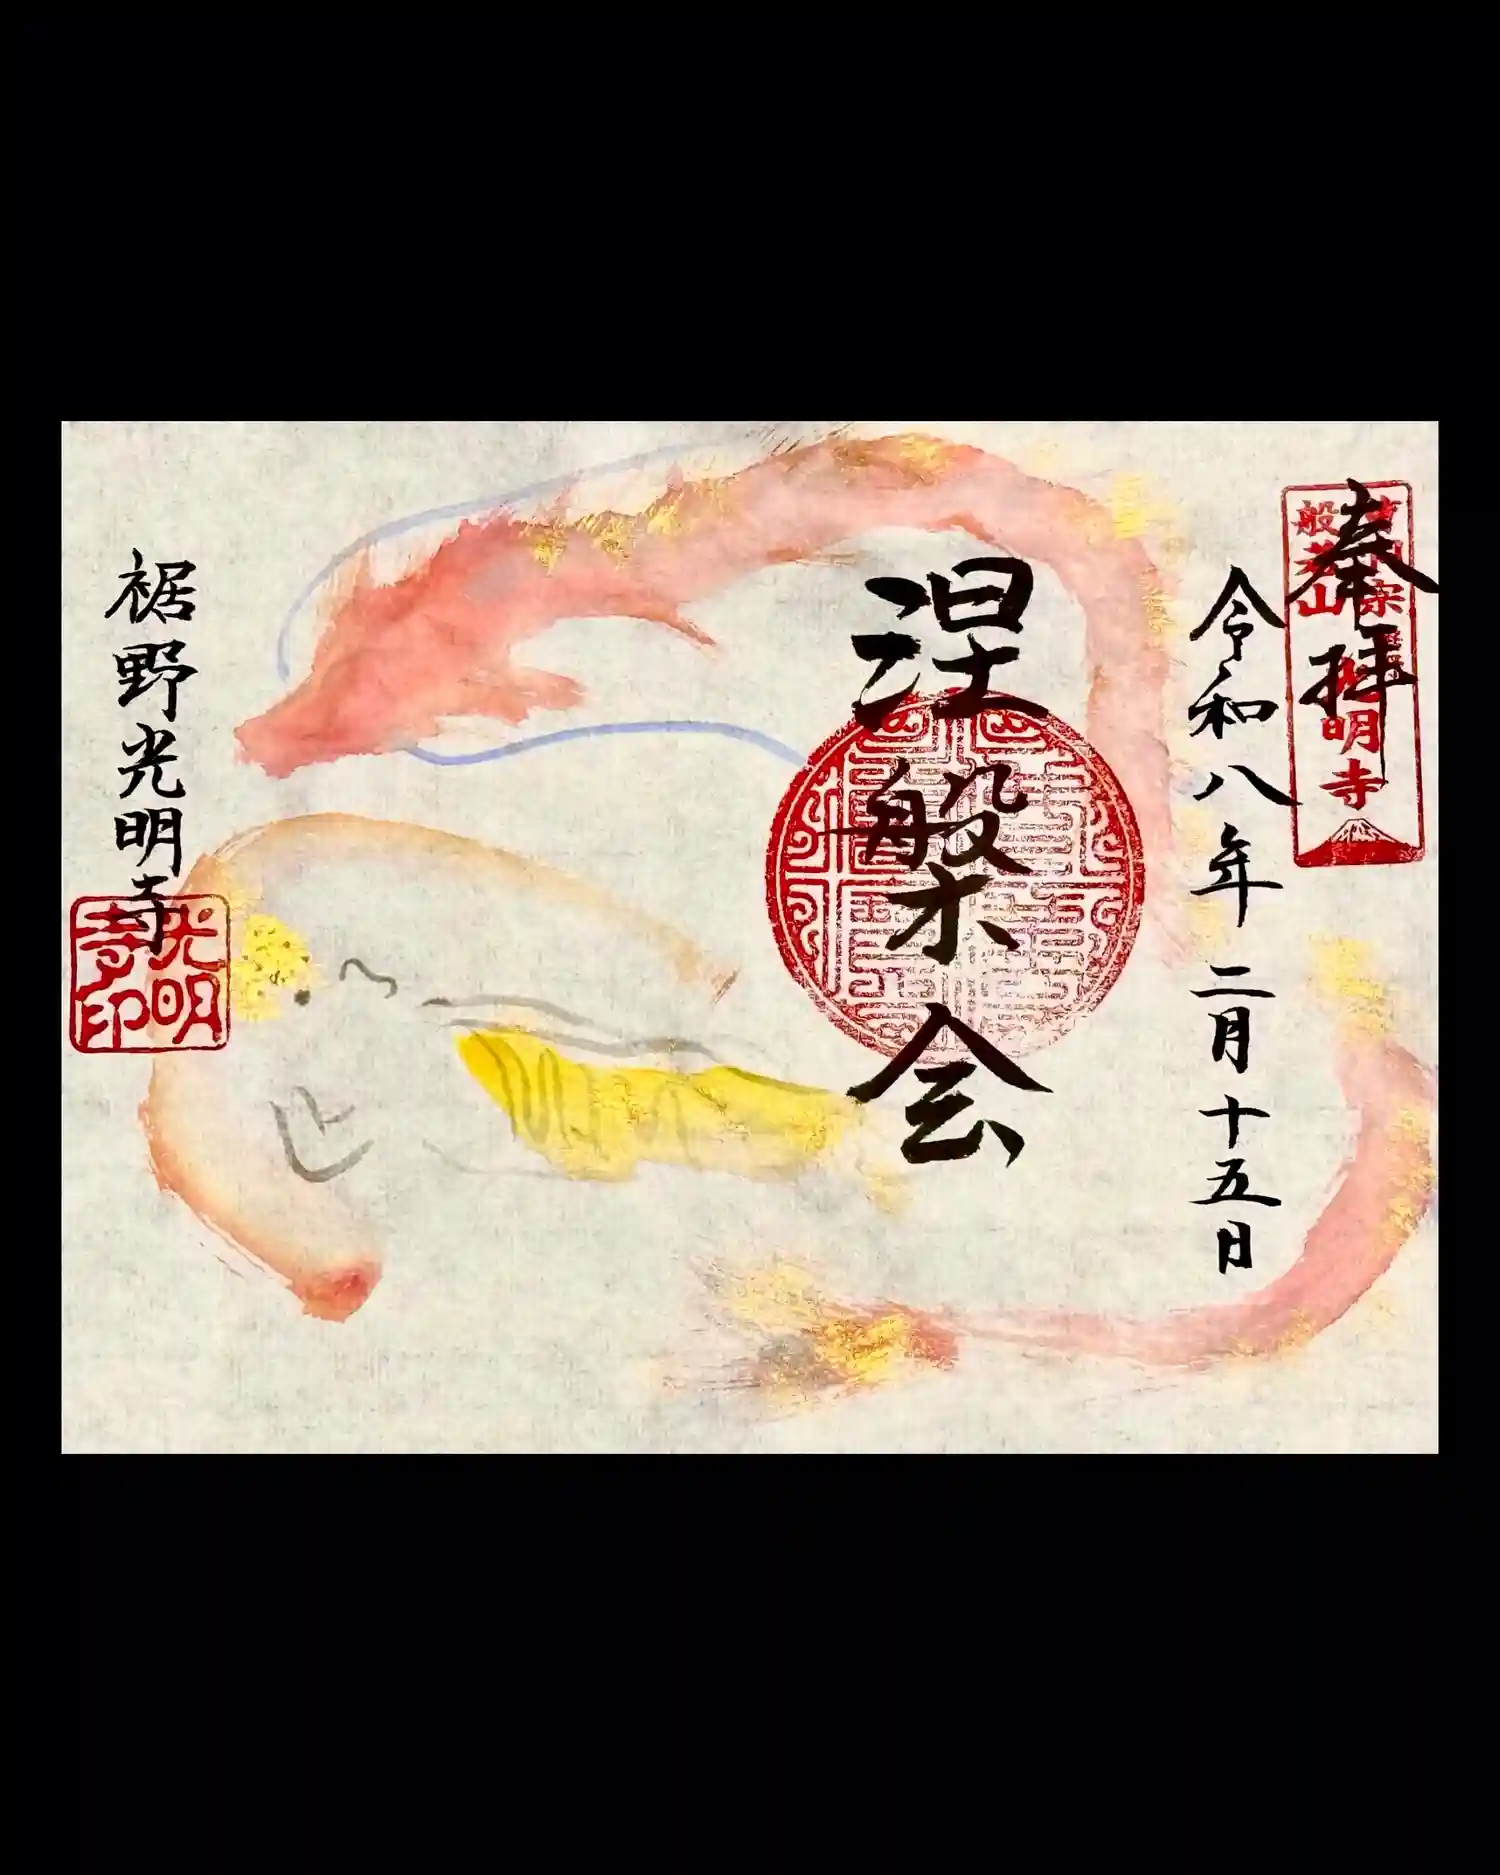 奉拝
曹洞宗
般若山
光明寺
令和八年二月十五日
涅槃会
裾野光明寺
光明
寺印